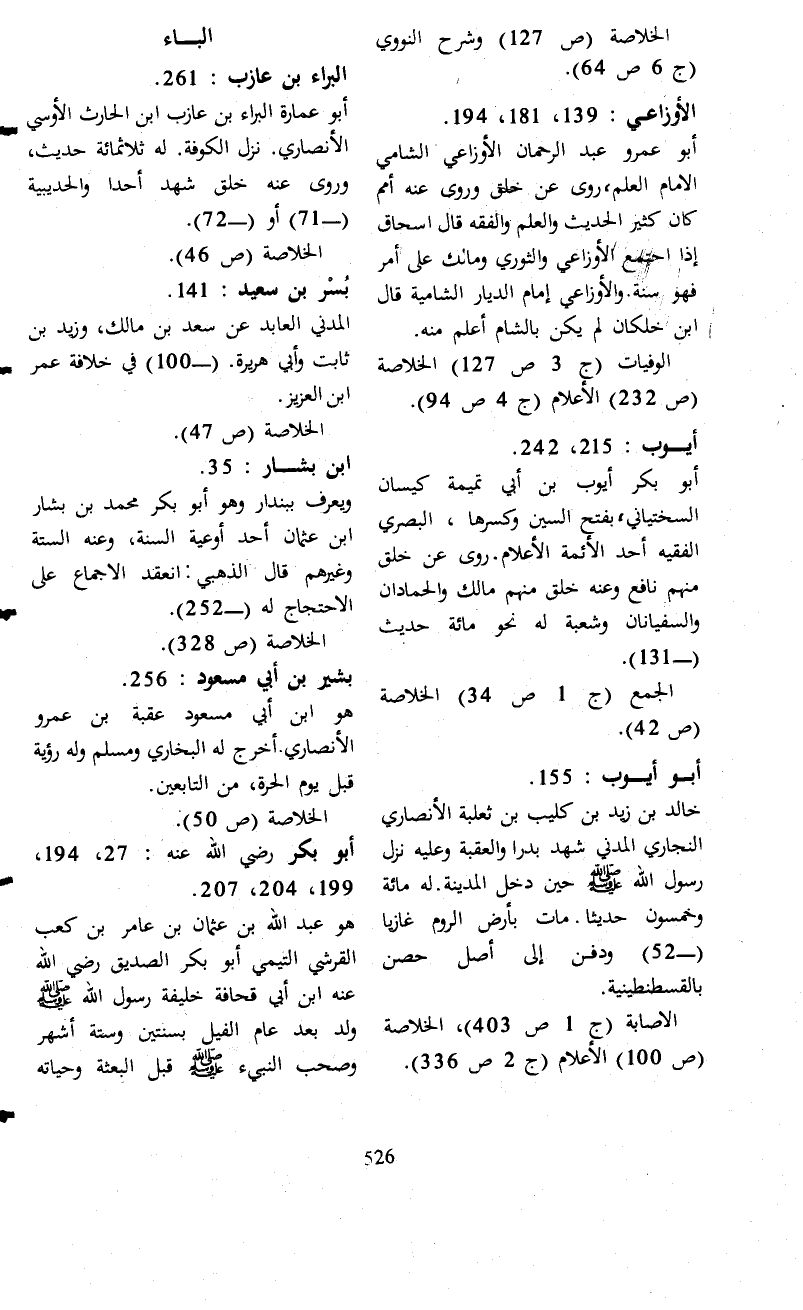 الخلاصة (ص 127) وشرح النووي
(ج 6 ص 64).
الأوزاعـي : 139، 181، 194.
أبو عمرو عبد الرحمان الأوزاعي الشامي
الامام العلم، روى عن خلق وروى عنه أمم
كان كثير الحديث والعلم والفقه قال اسحاق
إذا اجتمع الأوزاعي والثوري ومالك على أمر
فهو سنة. والأوزاعي إمام الديار الشامية قال
ابن خلكان لم يكن بالشام أعلم منه.
الوفيات (ج 3 ص 127) الخلاصة
(ص 232) الأعلام (ج 4 ص 94).
أيـــوب : 215، 242.
أبو بكر أيوب بن أبي تميمة كيسان
السختياني، بفتح السين وكسرها ، البصري
الفقيه أحد الأئمة الأعلام. روى عن خلق
منهم نافع وعنه خلق منهم مالك والحمادان
والسفيانان وشعبة له نحو مائة حديث
(—131).
الجمع (ج 1 ص 34) الخلاصة
(ص 42).
أبـو أيــوب : 155.
خالد بن زيد بن كليب بن ثعلبة الأنصاري
النجاري المدني شهد بدرا والعقبة وعليه نزل
رسول الله ﷺ حين دخل المدينة. له مائة
وخمسون حديثا. مات بأرض الروم غازيا
(—52) ودفـن إلى أصل حصن
بالقسطنطينية.
الاصابة (ج 1 ص 403)، الخلاصة
(ص 100) الأعلام (ج 2 ص 336).
البـــاء
البراء بن عازب : 261.
أبو عمارة البراء بن عازب ابن الحارث الأوسي
الأنصاري. نزل الكوفة. له ثلاثمائة حديث،
وروى عنه خلق شهد أحدا والحديبية
(—71) أو (—72).
الخلاصة (ص 46).
بُسْر بن سعيد : 141.
المدني العابد عن سعد بن مالك، وزيد بن
ثابت وأبي هريرة. (—100) في خلافة عمر
ابن العزيز.
الخلاصة (ص 47).
ابن بشـــار : 35.
ويعرف ببندار وهو أبو بكر محمد بن بشار
ابن عثمان أحد أوعية السنة، وعنه الستة
وغيرهم قال الذهبي : انعقد الاجماع على
الاحتجاج له (—252).
الخلاصة (ص 328).
بشير بن أبي مسعود : 256.
هو ابن أبي مسعود عقبة بن عمرو
الأنصاري. أخرج له البخاري ومسلم وله رؤية
قبل يوم الحرة، من التابعين.
الخلاصة (ص 50).
أبو بكر رضي الله عنه : 27، 194،
199، 204، 207.
هو عبد الله بن عثمان بن عامر بن كعب
القرشي التيمي أبو بكر الصديق رضي الله
عنه ابن أبي قحافة خليفة رسول الله ﷺ
ولد بعد عام الفيل بسنتين وستة أشهر
وصحب النبيء ﷺ قبل البعثة وحياته
526